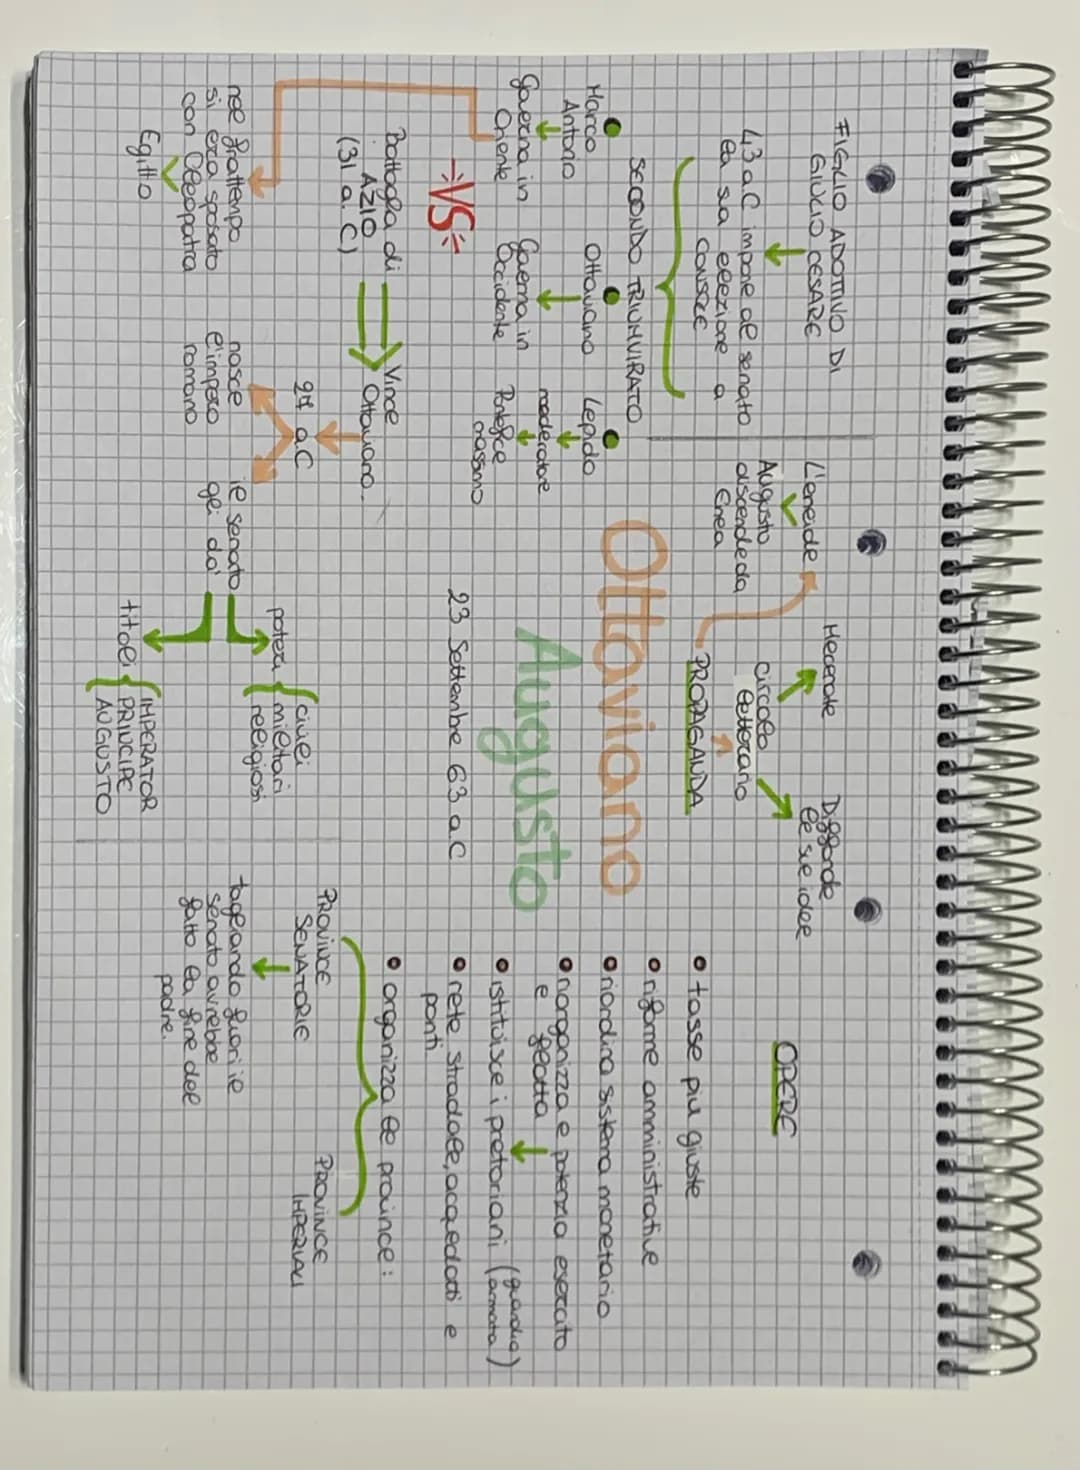 FIGLIO ADOTTIVO DI
GIULIO CESARE
43 a.C impone al senato
la sua elezione a
CONSOLE
SECONDO TRIUMVIRATO
Marco
Antonio
Governa in
Oriente
Ottaviano
Governa in
Occidente
Lepido
moderatore
Pontefice
massimo
VS
Battaglia di
AZIO
(31 a.C)
Vince
Ottaviano.
nel frattempo
si era sposato
con Cleopatra
Egitto
27 a.C
nasce
l'impero
romano
il senato
gli dà
poteri
civili
militari
religiosi
titoli
IMPERATOR
PRINCIPE
AUGUSTO
L'eneide
Augusto
discende da
Enea
Mecenate
circolo
letterario
Diffonde
le sue idee
PROPAGANDA
Ottaviano
Augusto
23 Settembre 63 a.C
OPERE
• tasse più giuste
• riforme amministrative
• riordina sistema monetario
• riorganizza e potenzia esercito
e flotta
• istituisce i pretoriani (guardia
armata)
• rete stradale, acquedotti e
ponti
• organizza le province:
PROVINCE
SENATORIE
PROVINCE
IMPERIALI
tagliando fuori il
senato avrebbe
fatto la fine del
padre.